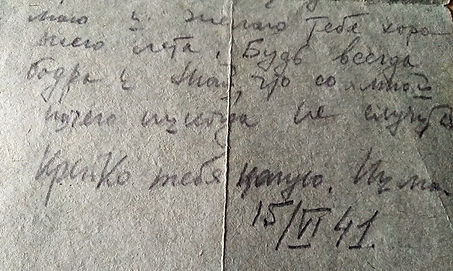 мою и желаю тебя хоро
шего лета. Будь всегда
бодра и знай, что со мной
ничего никогда не случит
Крепко тебя целую.
15/VI 41.